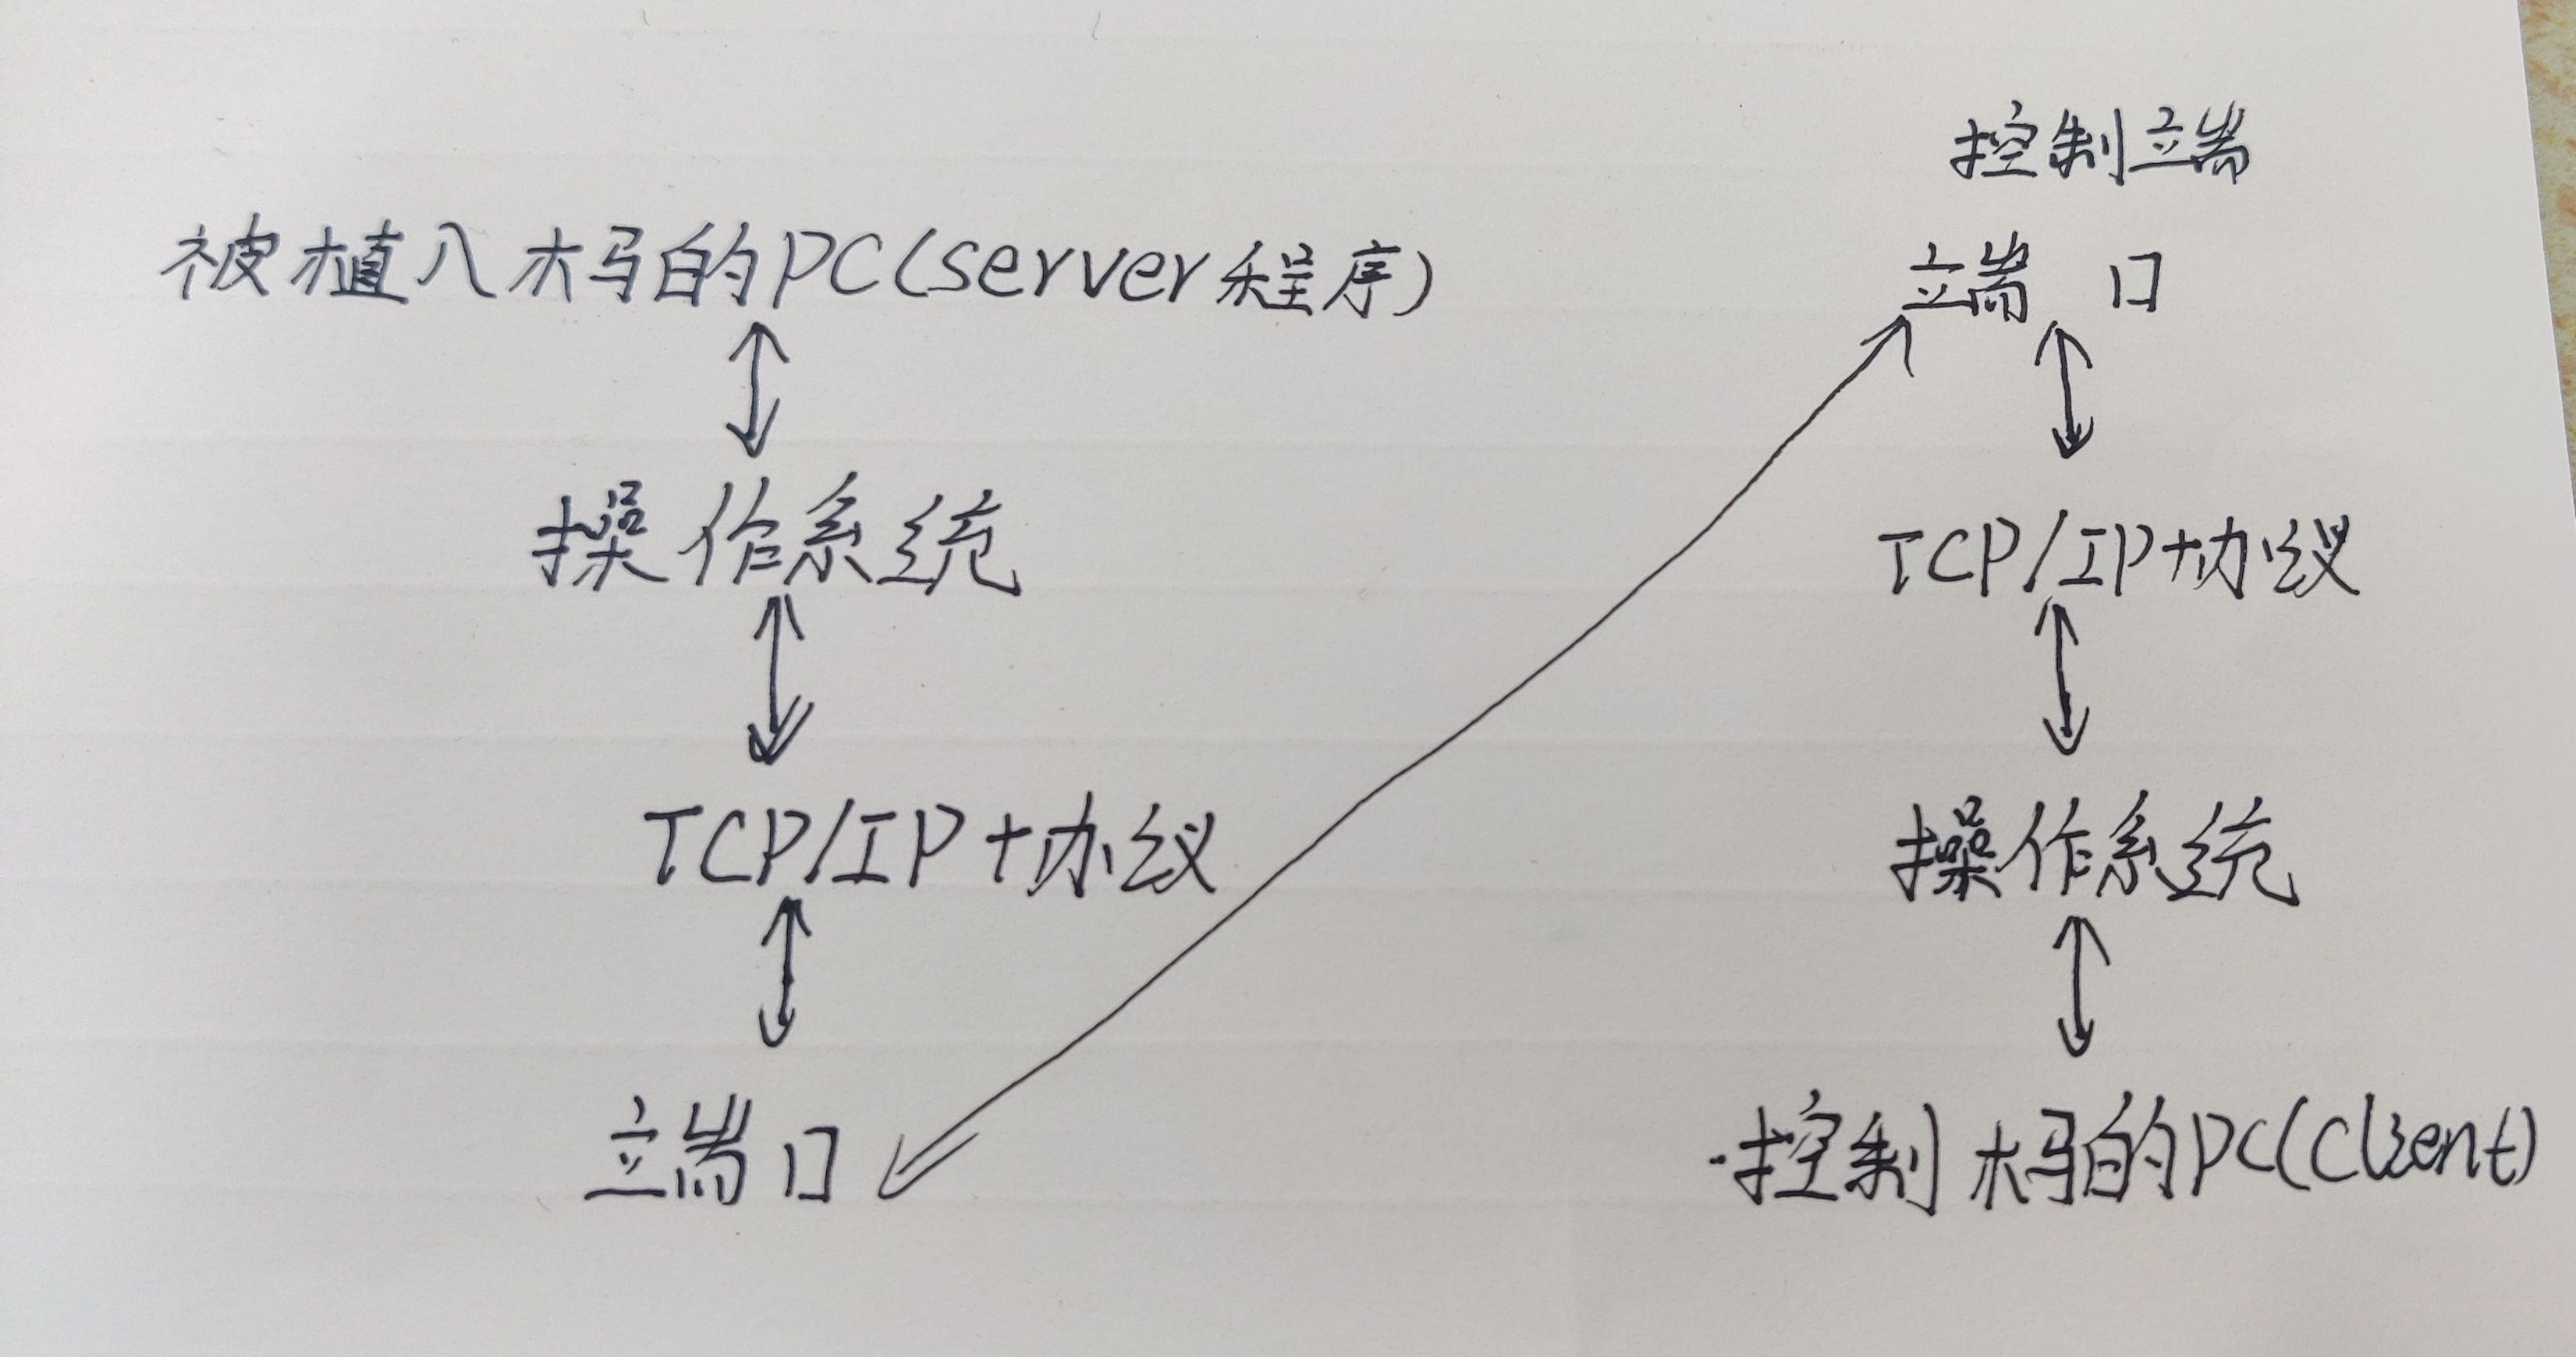 被植入木马的PC(server程序)
操作系统
TCP/IP协议
端口
控制端
端口
TCP/IP协议
操作系统
控制木马的PC(Client)